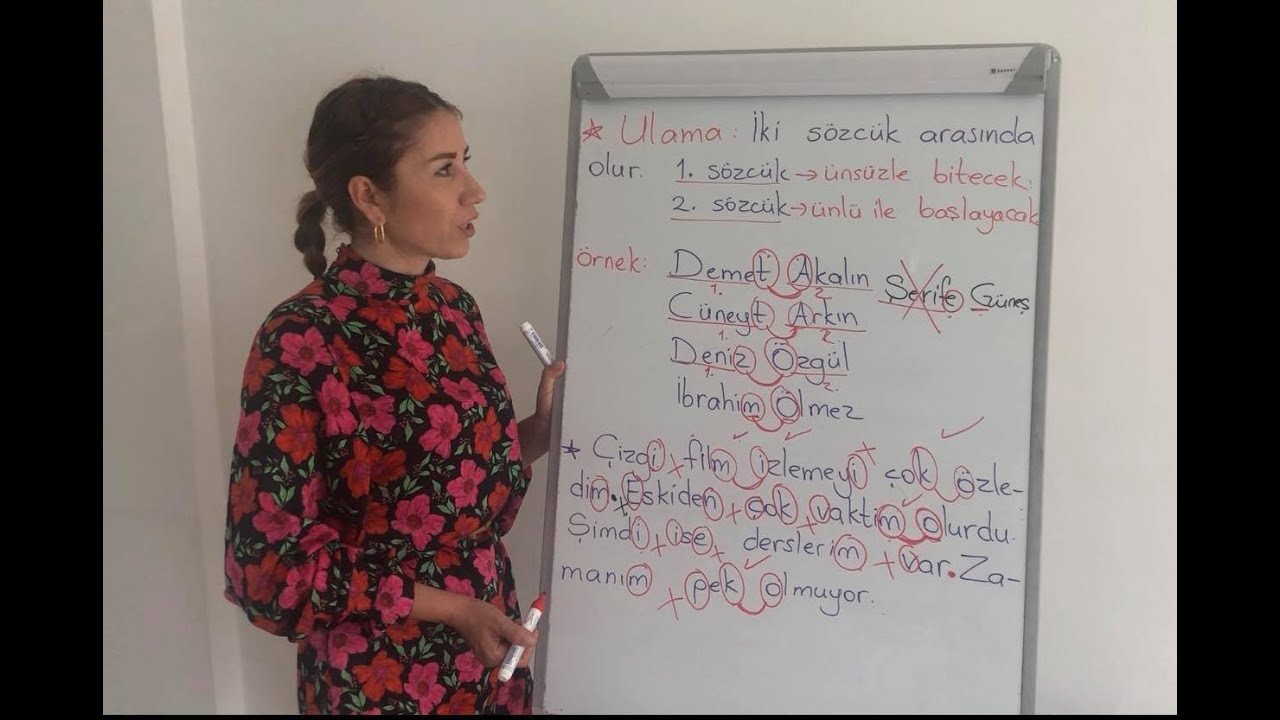 * Ulama: İki sözcük arasında
olur. 1. sözcük → ünsüzle bitecek.
2. sözcük → ünlü ile başlayacak
örnek: Demet Akalın Şerife Güneş
1. 2.
Cüneyt Arkın
1. 2.
Deniz Özgül
1. 2.
İbrahim Ölmez
* Çizgi film izlemeyi çok özle-
dim. Eskiden çok vaktim olurdu.
Şimdi ise derslerim var. Za-
manım pek olmuyor.